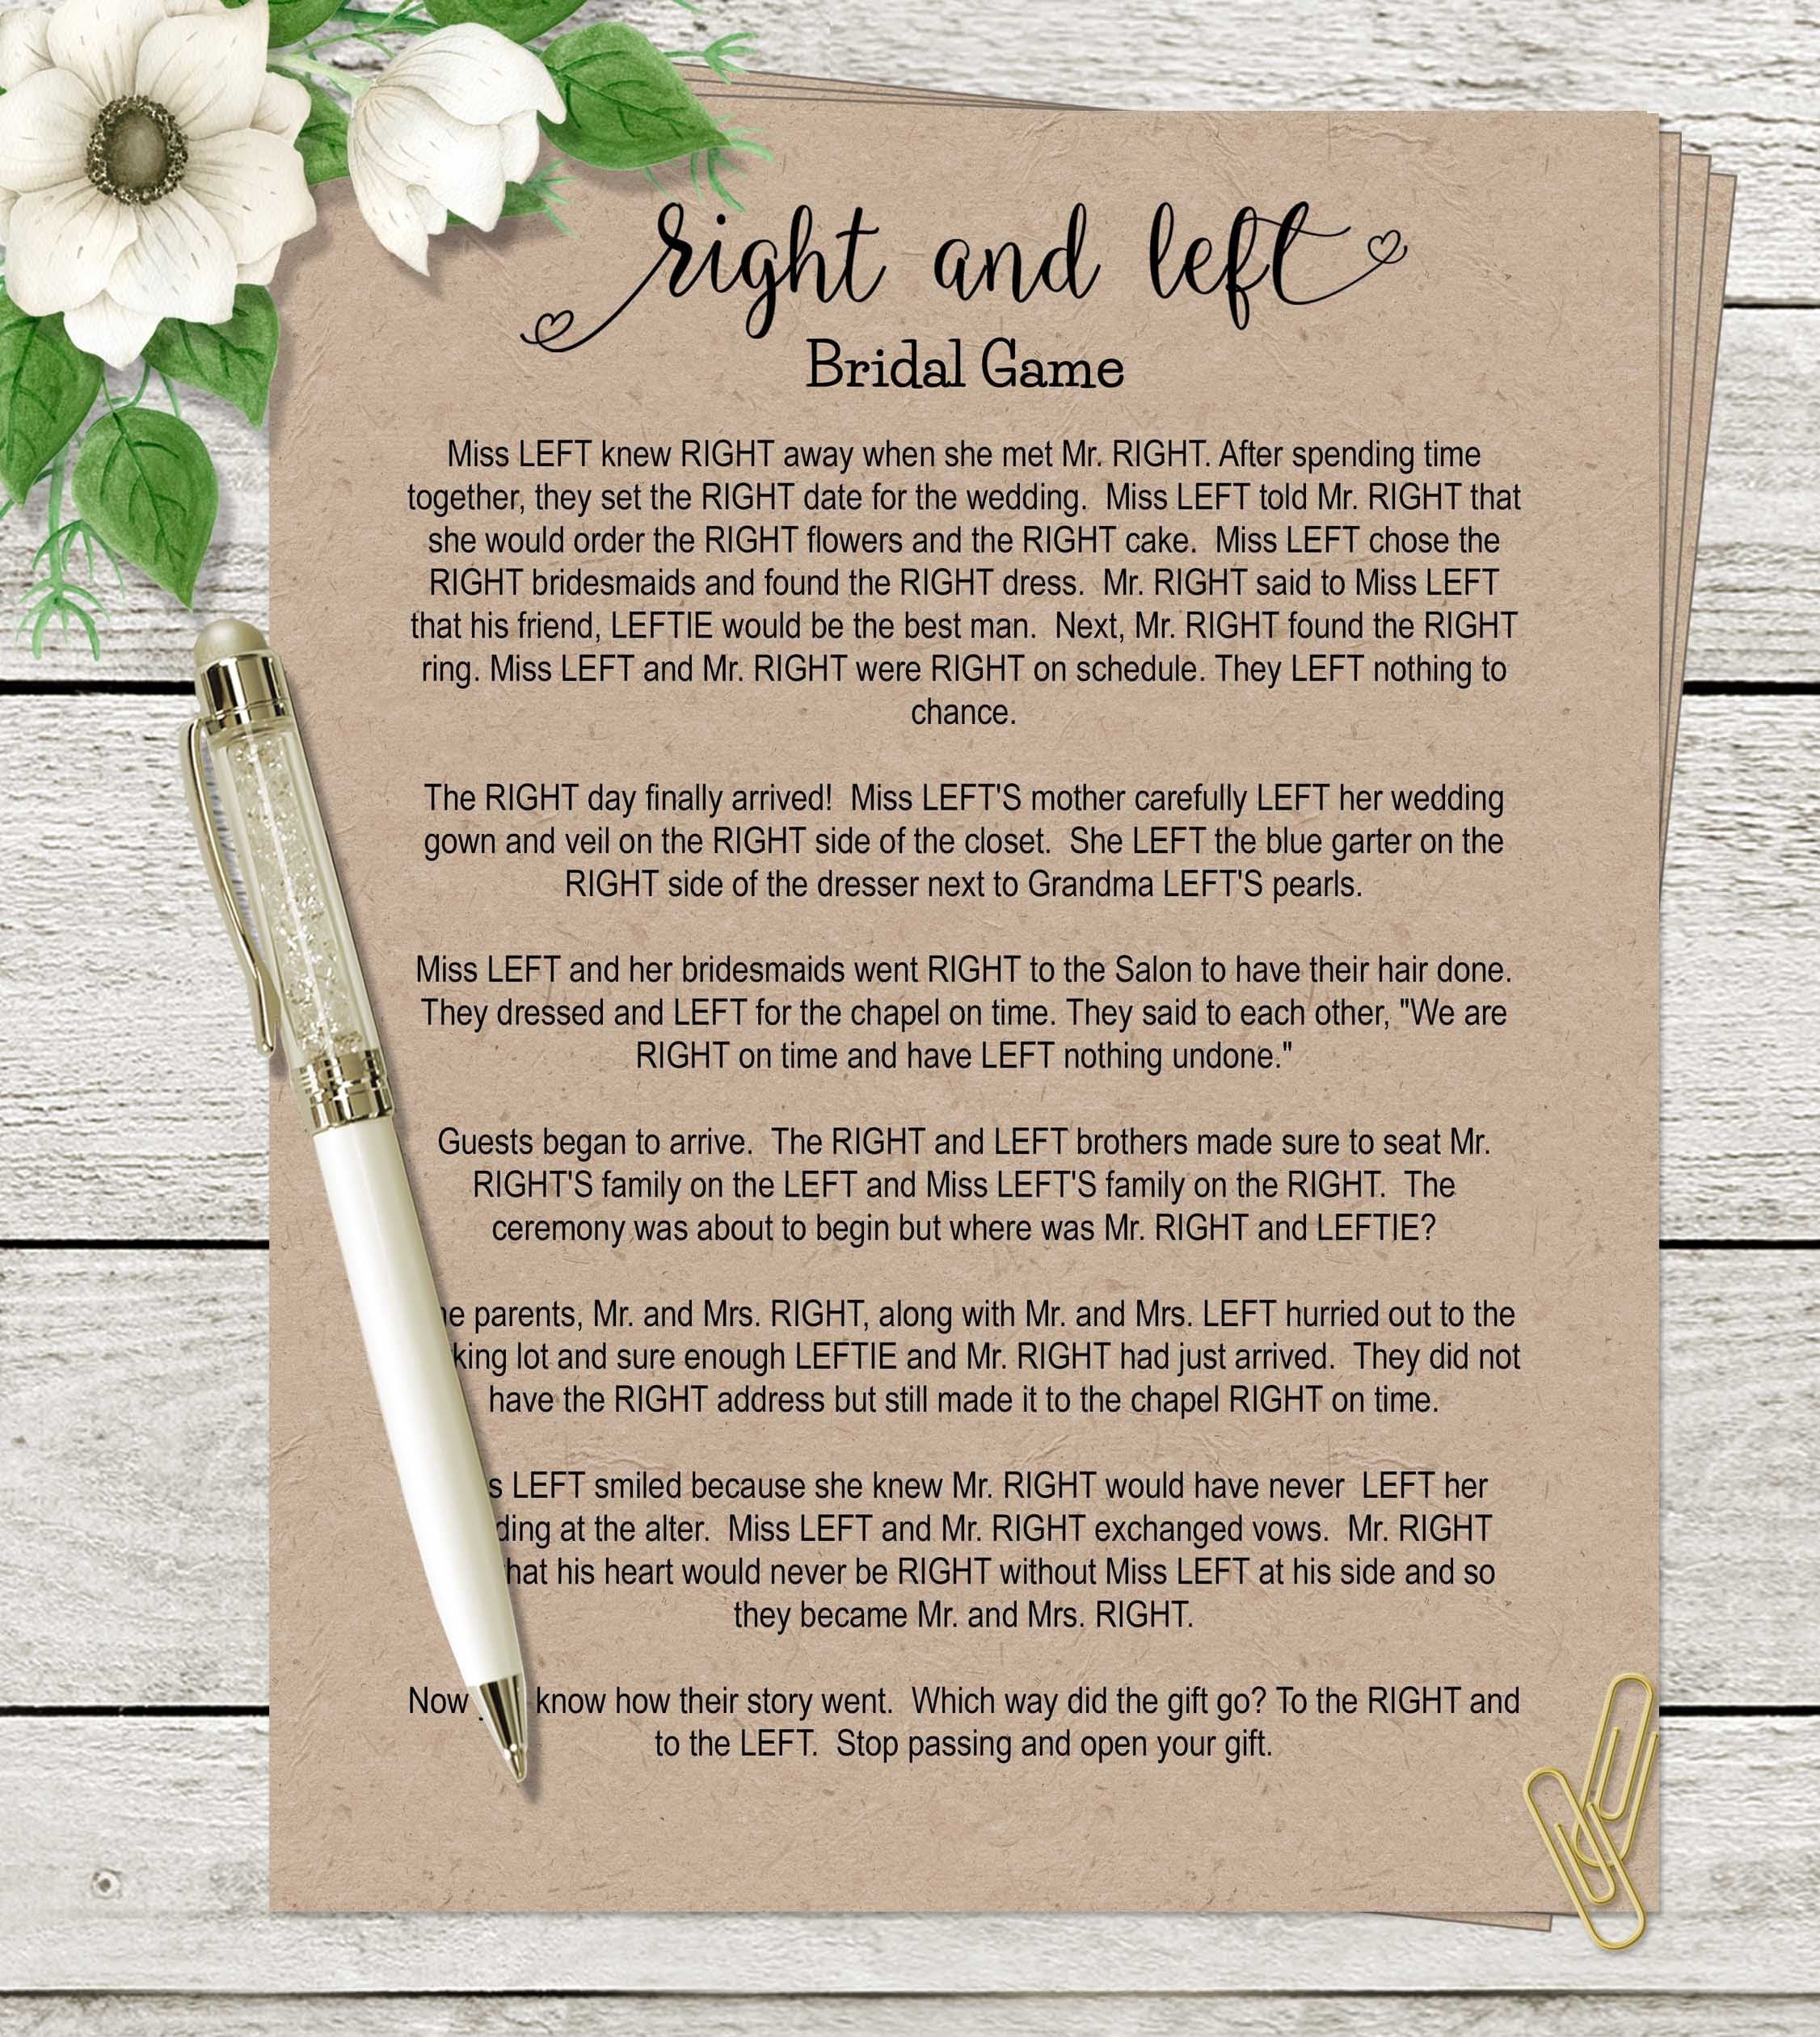 right and left
Bridal Game
Miss LEFT knew RIGHT away when she met Mr. RIGHT. After spending time
together, they set the RIGHT date for the wedding.  Miss LEFT told Mr. RIGHT that
she would order the RIGHT flowers and the RIGHT cake.  Miss LEFT chose the
RIGHT bridesmaids and found the RIGHT dress.  Mr. RIGHT said to Miss LEFT
that his friend, LEFTIE would be the best man.  Next, Mr. RIGHT found the RIGHT
ring. Miss LEFT and Mr. RIGHT were RIGHT on schedule. They LEFT nothing to
chance.
The RIGHT day finally arrived!  Miss LEFT'S mother carefully LEFT her wedding
gown and veil on the RIGHT side of the closet.  She LEFT the blue garter on the
RIGHT side of the dresser next to Grandma LEFT'S pearls.
Miss LEFT and her bridesmaids went RIGHT to the Salon to have their hair done.
They dressed and LEFT for the chapel on time. They said to each other, "We are
RIGHT on time and have LEFT nothing undone."
Guests began to arrive.  The RIGHT and LEFT brothers made sure to seat Mr.
RIGHT'S family on the LEFT and Miss LEFT'S family on the RIGHT.  The
ceremony was about to begin but where was Mr. RIGHT and LEFTIE?
parents, Mr. and Mrs. RIGHT, along with Mr. and Mrs. LEFT hurried out to the
lot and sure enough LEFTIE and Mr. RIGHT had just arrived.  They did not
have the RIGHT address but still made it to the chapel RIGHT on time.
LEFT smiled because she knew Mr. RIGHT would have never  LEFT her
at the alter.  Miss LEFT and Mr. RIGHT exchanged vows.  Mr. RIGHT
his heart would never be RIGHT without Miss LEFT at his side and so
they became Mr. and Mrs. RIGHT.
Now know how their story went.  Which way did the gift go? To the RIGHT and
to the LEFT.  Stop passing and open your gift.